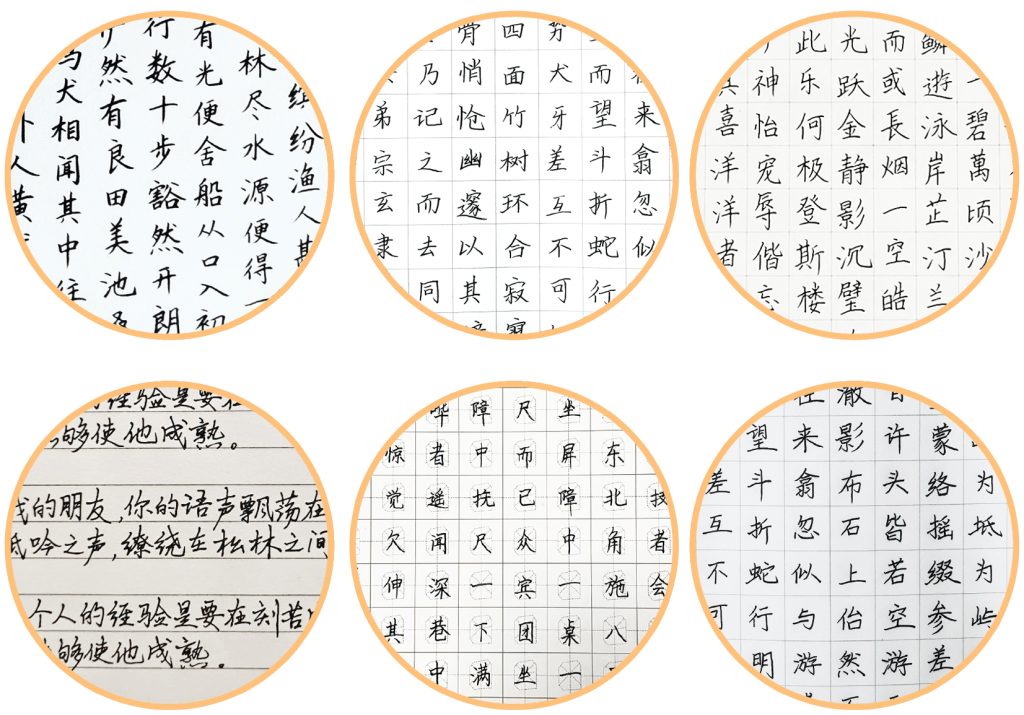 缤纷渔人甚
林尽水源便得一
有光便舍船从口入初
行数十步豁然开朗
然有良田美池及
犬相闻其中往
人黄
来翕忽似
而望斗折蛇行
犬牙差互不可
四面竹树环合寂寥
骨悄怆幽邃以其
乃记之而去同
弟宗玄隶
一碧萬顷沙
鳞遊泳岸芷汀兰
而或長烟一空皓
光跃金静影沉璧
此乐何极登斯楼
神怡宠辱偕忘
喜洋洋者
经验是要在
够使他成熟。
我的朋友,你的语声飘荡在
低吟之声,缭绕在松林之间
个人的经验是要在刻苦
够使他成熟。
技者会
东北角施八
坐屏障中一桌一
尺而已众宾团坐
障中抚尺一下满
哗者遥闻深巷中
惊觉欠伸其
为坻为屿
蒙络摇缀参差
许头皆若空游
澈影布石上佁然
来翕忽似与游
望斗折蛇行明
差互不可